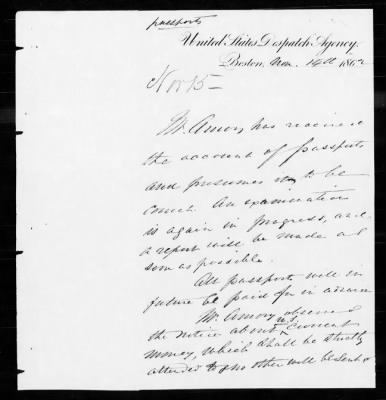 passports
United States Despatch Agency.
Boston, Nov. 14th 1862
Nov 15
Mr. Amory has received
the account of passports
and presumes it to be
correct. An examination
is again in progress, and
a report will be made as
soon as possible.
All passports will in
future be paid for in advance
Mr. Amory observed
the notice about U.S. current
money, which shall be strictly
attended to & no other will be sent